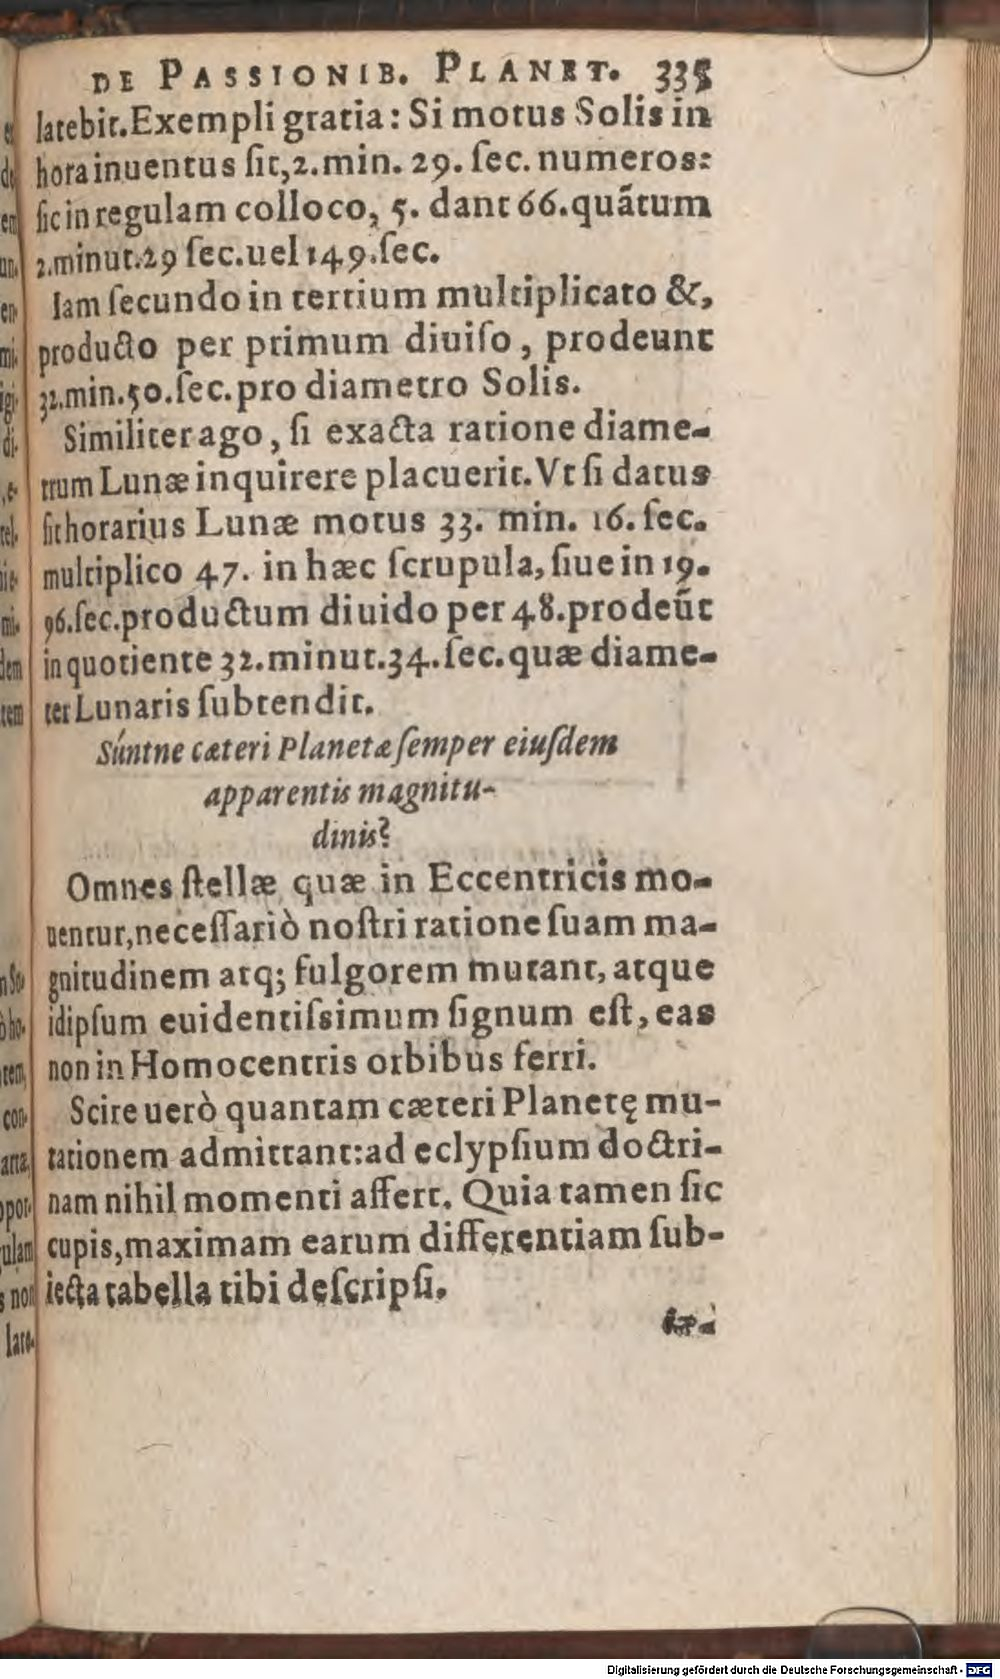 DE PASSIONIB. PLANET. 335
latebit. Exempli gratia: Si motus Solis in
hora inuentus ſit, 2. min. 29. ſec. numeros:
ſic in regulam colloco, 5. dant 66. quãtum
2. minut. 29 ſec. uel 149. ſec.
Iam ſecundo in tertium multiplicato &,
producto per primum diuiſo, prodeunt
32. min. 50. ſec. pro diametro Solis.
Similiter ago, ſi exacta ratione diame-
trum Lunæ inquirere placuerit. Vt ſi datus
ſit horarius Lunæ motus 33. min. 16. ſec.
multiplico 47. in hæc ſcrupula, ſiue in 19.
96. ſec. productum diuido per 48. prodeũt
in quotiente 32. minut. 34. ſec. quæ diame-
ter Lunaris ſubtendit.
Súntne cæteri Planetæ ſemper eiuſdem
apparentis magnitu-
dinis?
Omnes ſtellæ quæ in Eccentricis mo-
uentur, neceſſariò noſtri ratione ſuam ma-
gnitudinem atq; fulgorem mutant, atque
idipſum euidentiſsimum ſignum eſt, eas
non in Homocentris orbibus ferri.
Scire uerò quantam cæteri Planetę mu-
tationem admittant: ad eclypſium doctri-
nam nihil momenti affert. Quia tamen ſic
cupis, maximam earum differentiam ſub-
iecta tabella tibi deſcripſi.
Digitalisierung gefördert durch die Deutsche Forschungsgemeinschaft - DFG